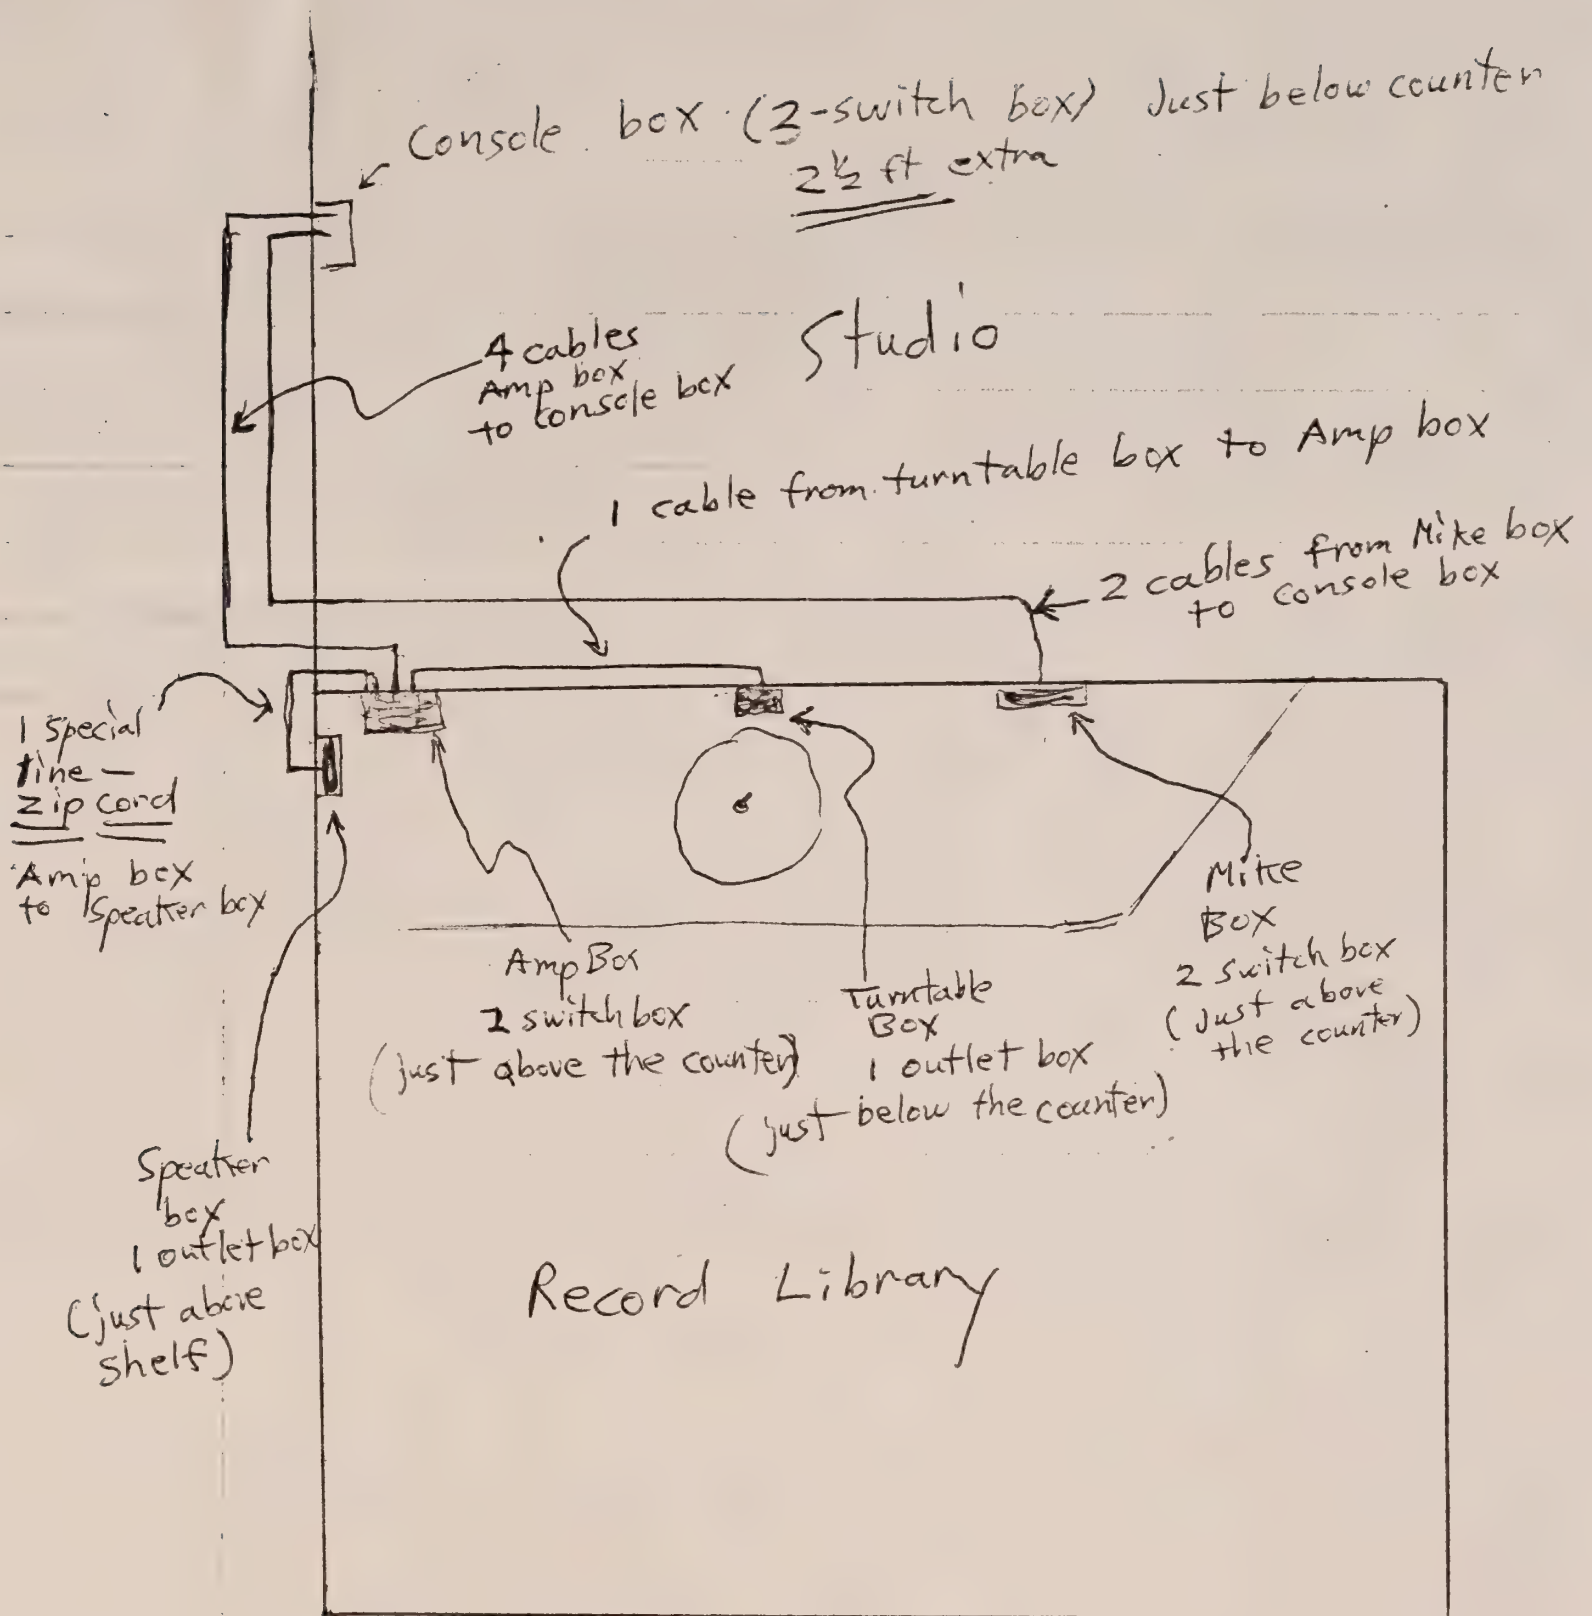 Console box (3-switch box) Just below counter
2 1/2 ft extra
4 cables
Amp box
to console box
Studio
1 cable from turntable box to Amp box
2 cables from Mike box
to console box
1 special
line —
zip cord
Amp box
to Speaker box
Amp Box
2 switch box
(just above the counter)
Turntable
Box
1 outlet box
(just below the counter)
Mike
Box
2 switch box
(Just above
the counter)
Speaker
box
1 outlet box
(just above
shelf)
Record Library